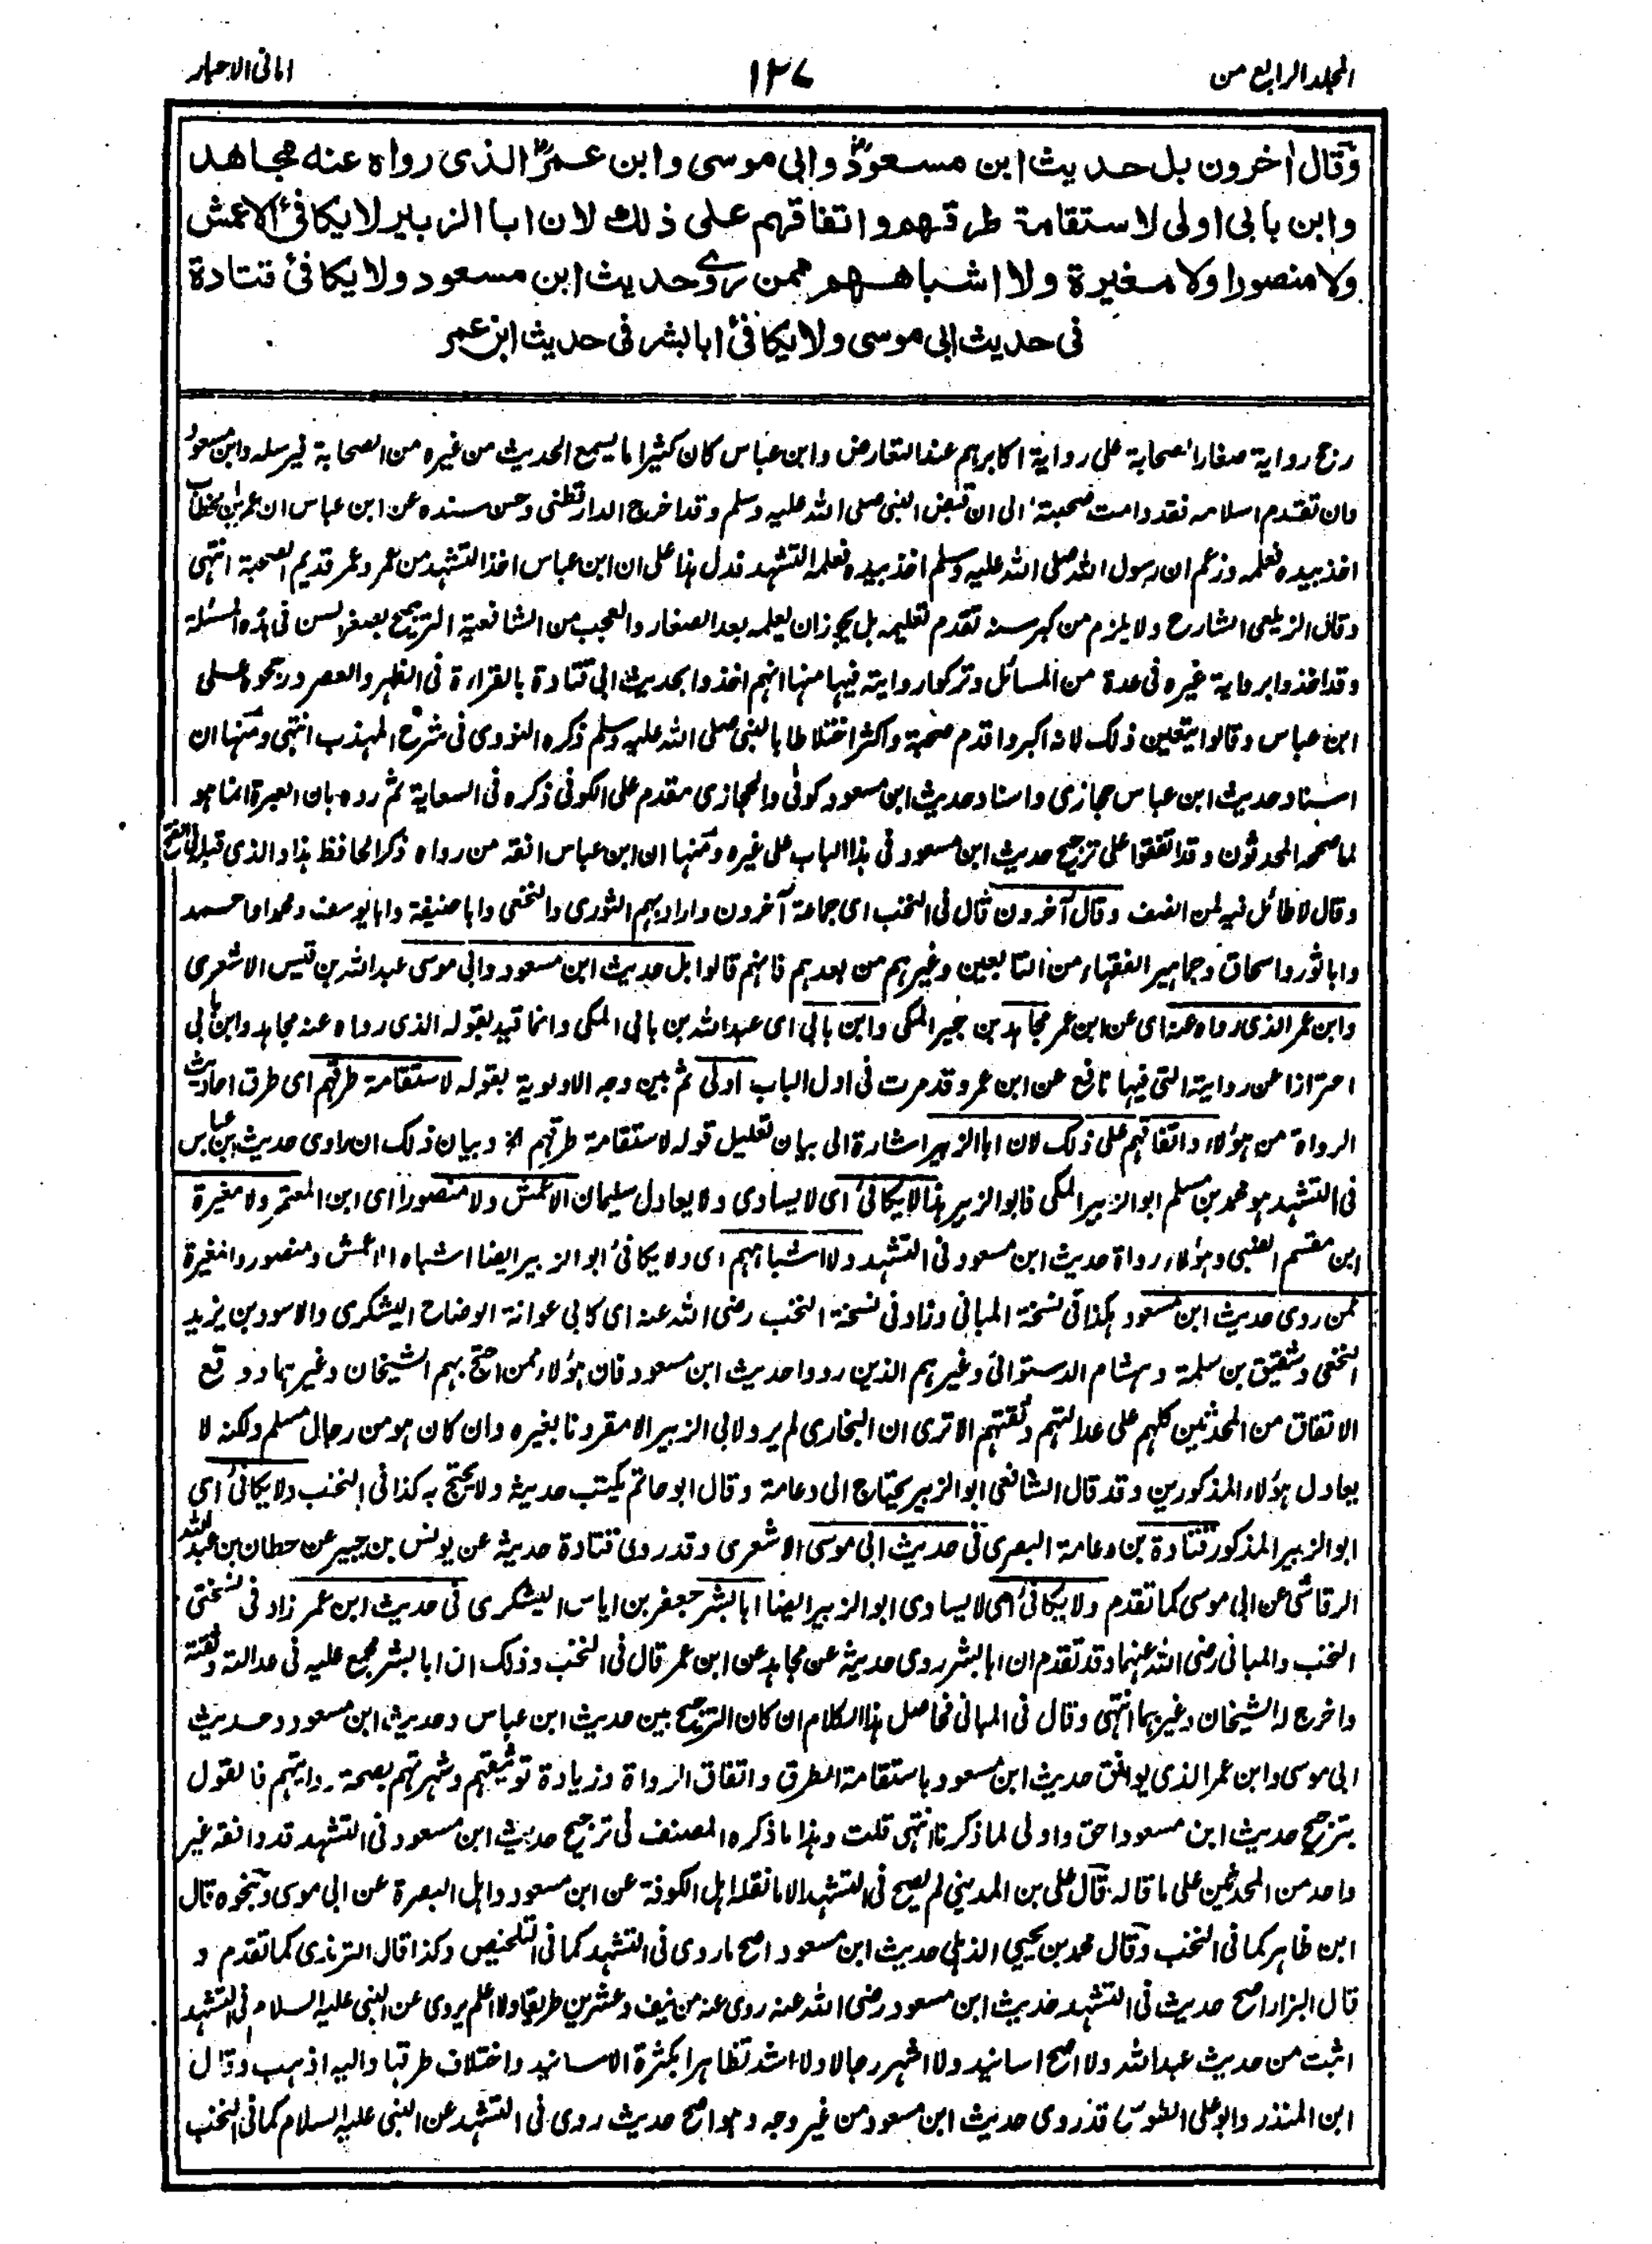 المجلد الرابع من
١٢٧
امانى الاحبار
وقال اخرون بل حديث ابن مسعودؓ وابى موسى وابن عمرؓ الذى رواه عنه مجاهد
وابن بابى اولى لاستقامة طرقهم واتفاقهم على ذلك لان ابا الزبير لا يكافئ الاعمش
ولا منصورا ولا مغيرة ولا اشباههم ممن روى حديث ابن مسعود ولا يكافئ قتادة
فى حديث ابى موسى ولا يكافئ ابا بشر فى حديث ابن عمر
رجح رواية صغار الصحابة على رواية اكابرهم عند التعارض وابن عباس كان كثيرا ما يسمع الحديث من غيره من الصحابة فيرسله وابن مسعودؓ
وان تقدم اسلامه فقد دامت صحبته الى ان قبض النبى صلى الله عليه وسلم وقد اخرج الدارقطنى وحسن سنده عن ابن عباس ان عمر بن الخطاب
اخذ بيده فعلمه وزعم ان رسول الله صلى الله عليه وسلم اخذ بيده فعلمه التشهد فدل هذا على ان ابن عباس اخذ التشهد من عمر وعمر قديم الصحبة انتهى
وقال الزيلعى الشارح ولا يلزم من كبر سنه تقدم تعليمه بل يجوز ان يعلمه بعد الصغار والعجب من الشافعية الترجيح بصغر السن فى هذه المسئلة
وقد اخذوا برواية غيره فى عدة من المسائل وتركوا روايته فيها منها انهم اخذوا بحديث ابى قتادة بالقراءة فى الظهر والعصر ورجحوه على
ابن عباس وقالوا يتعين ذلك لانه اكبر واقدم صحبة واكثر اختلاطا بالنبى صلى الله عليه وسلم ذكره النووى فى شرح المهذب انتهى ومنها ان
اسناد حديث ابن عباس حجازى واسناد حديث ابن مسعود كوفى والحجازى مقدم على الكوفى ذكره فى السعاية ثم رده بان العبرة انما هو
لما صححه المحدثون وقد اتفقوا على ترجيح حديث ابن مسعود فى هذا الباب على غيره ومنها ان ابن عباس افقه من رواه ذكر الحافظ هذا والذى قبله فى الفتح
وقال لا طائل فيه لمن انصف وقال آخرون قال فى النخب اى جماعة آخرون واراد بهم الثورى والنخعى وابا حنيفة وابا يوسف ومحمدا واحمد
وابا ثور واسحاق وجماهير الفقهاء من التابعين وغيرهم من بعدهم فانهم قالوا بل حديث ابن مسعود وابى موسى عبد الله بن قيس الاشعرى
وابن عمر الذى رواه عنه اى عن ابن عمر مجاهد بن جبير المكى وابن بابى اى عبد الله بن بابى المكى وانما قيد بقوله الذى رواه عنه مجاهد وابن بابى
احترازا عن روايته التى فيها نافع عن ابن عمر وقد مرت فى اول الباب اولى ثم بين وجه الاولوية بقوله لاستقامة طرقهم اى طرق احاديث
الرواة من هؤلاء واتفاقهم على ذلك لان ابا الزبير اشارة الى بيان تعليل قوله لاستقامة طرقهم الخ وبيان ذلك ان راوى حديث ابن عباس
فى التشهد هو محمد بن مسلم ابو الزبير المكى فابو الزبير هذا لا يكافئ اى لا يساوى ولا يعادل سليمان الاعمش ولا منصورا اى ابن المعتمر ولا مغيرة
ابن مقسم الضبى وهؤلاء رواة حديث ابن مسعود فى التشهد ولا اشباههم اى ولا يكافئ ابو الزبير ايضا اشباه الاعمش ومنصور والمغيرة
ممن روى حديث ابن مسعود هكذا فى نسخة المبانى وزاد فى نسخة النخب رضى الله عنه اى كابى عوانة الوضاح اليشكرى والاسود بن يزيد
النخعى وشقيق بن سلمة وهشام الدستوائى وغيرهم الذين رووا حديث ابن مسعود فان هؤلاء ممن احتج بهم الشيخان وغيرهما ووقع
الاتفاق من المحدثين كلهم على عدالتهم وثقتهم الا ترى ان البخارى لم يرو لابى الزبير الا مقرونا بغيره وان كان هو من رجال مسلم ولكنه لا
يعادل هؤلاء المذكورين وقد قال الشافعى ابو الزبير يحتاج الى دعامة وقال ابو حاتم يكتب حديثه ولا يحتج به كذا فى النخب ولا يكافئ اى
ابو الزبير المذكور قتادة بن دعامة البصرى فى حديث ابى موسى الاشعرى وقد روى قتادة حديثه عن يونس بن جبير عن حطان بن عبد الله
الرقاشى عن ابى موسى كما تقدم ولا يكافئ اى لا يساوى ابو الزبير ايضا ابا بشر جعفر بن اياس اليشكرى فى حديث ابن عمر زاد فى نسختى
النخب والمبانى رضى الله عنهما وقد تقدم ان ابا بشر روى حديثه عن مجاهد عن ابن عمر قال فى النخب وذلك ان ابا بشر مجمع عليه فى عدالته وثقته
واخرج له الشيخان وغيرهما انتهى وقال فى المبانى فحاصل هذا الكلام ان كان الترجيح بين حديث ابن عباس وحديث ابن مسعود وحديث
ابى موسى وابن عمر الذى يوافق حديث ابن مسعود باستقامة الطرق واتفاق الرواة وزيادة توثيقهم وشهرتهم بصحة روايتهم فالقول
بترجيح حديث ابن مسعود احق واولى لما ذكرنا انتهى قلت وهذا ما ذكره المصنف فى ترجيح حديث ابن مسعود فى التشهد قد وافقه غير
واحد من المحدثين على ما قاله قال على بن المدينى لم يصح فى التشهد الا ما نقله اهل الكوفة عن ابن مسعود واهل البصرة عن ابى موسى وبنحوه قال
ابن طاهر كما فى النخب وقال محمد بن يحيى الذهلى حديث ابن مسعود اصح ما روى فى التشهد كما فى التلخيص وكذا قال الترمذى كما تقدم و
قال البزار اصح حديث فى التشهد حديث ابن مسعود رضى الله عنه روى عنه من نيف وعشرين طريقا ولا اعلم يروى عن النبى عليه السلام فى التشهد
اثبت من حديث عبد الله ولا اصح اسانيد ولا اشهر رجالا ولا اشد تظاهرا بكثرة الاسانيد واختلاف طرقها واليه اذهب وقال
ابن المنذر وابو على الطوسى قد روى حديث ابن مسعود من غير وجه وهو اصح حديث روى فى التشهد عن النبى عليه السلام كما فى النخب